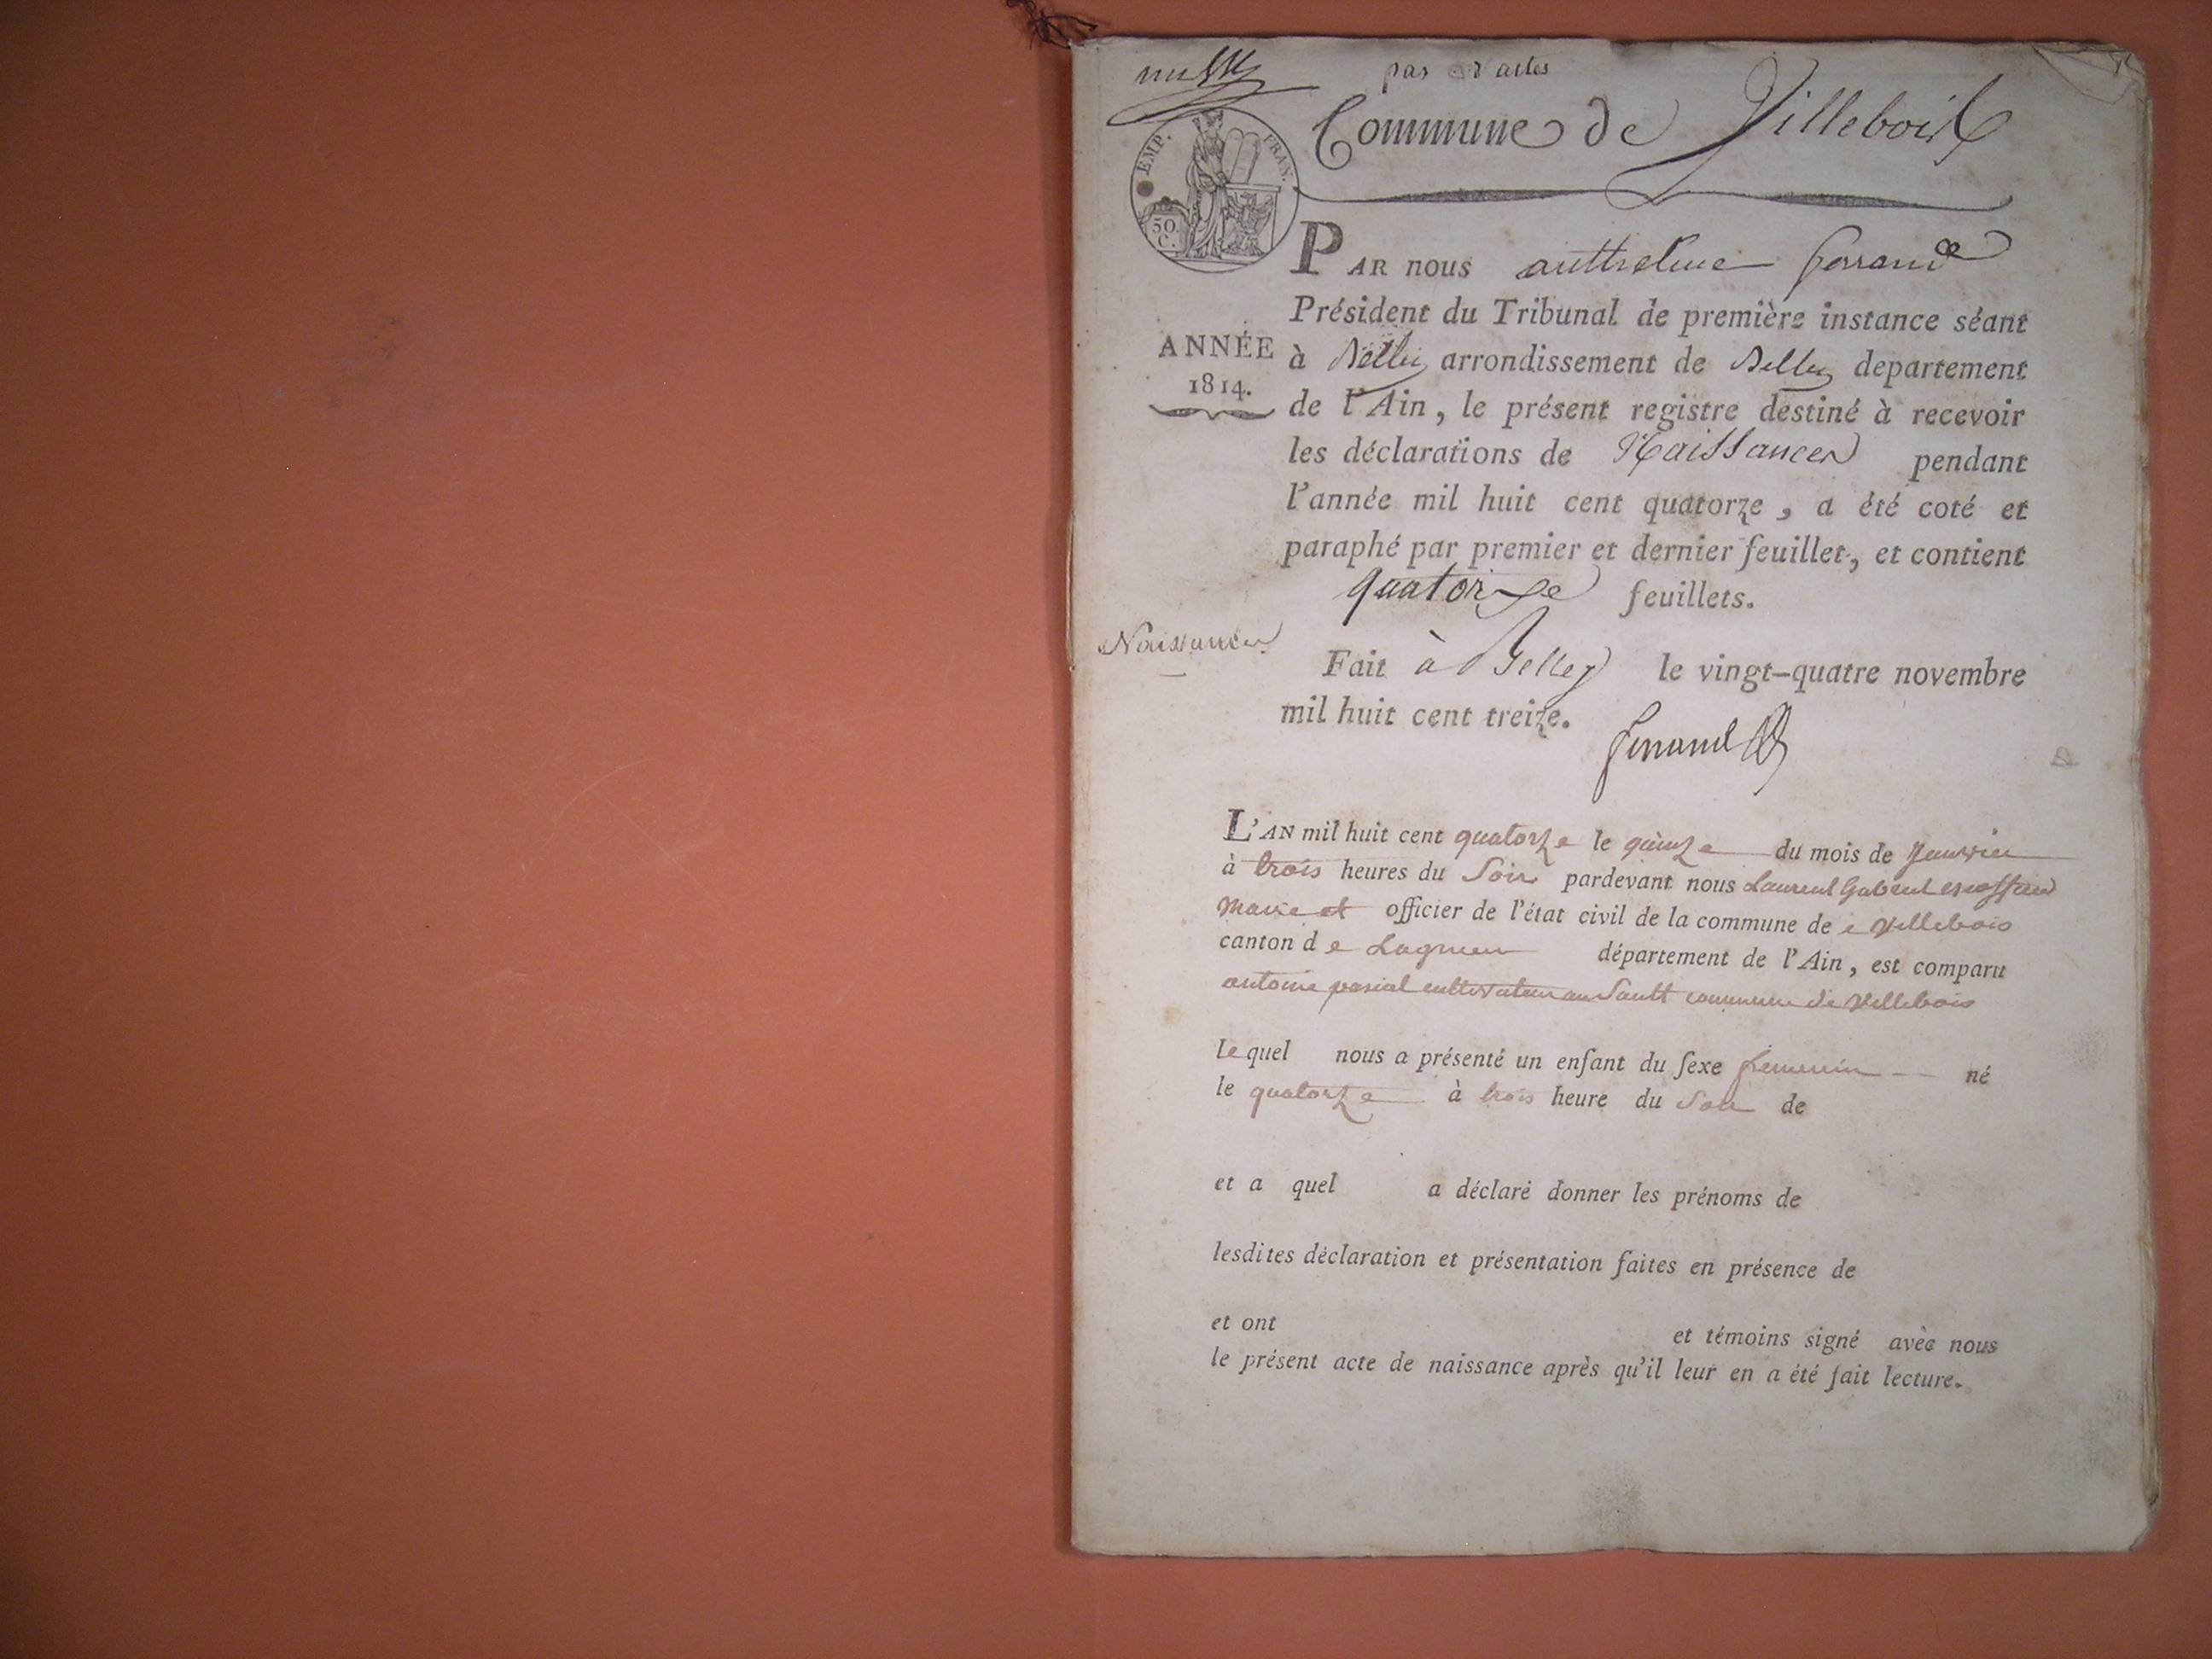 pas d'actes
Commune de Villebois
EMP. FRAN.
50.
C.
PAR nous anthelme ferrand
Président du Tribunal de première instance séant
ANNÉE
1814.
à Belley arrondissement de Belley departement
de l'Ain, le présent registre destiné à recevoir
les déclarations de Naissances pendant
l'année mil huit cent quatorze, a été coté et
paraphé par premier et dernier feuillet, et contient
quatorze feuillets.
Naissances.
Fait à Belley le vingt-quatre novembre
mil huit cent treize.
ferrand
L'AN mil huit cent quatorze le quinze du mois de Janvier
à trois heures du Soir pardevant nous Laurent Gabriel
Maire et officier de l'état civil de la commune de Villebois
canton de Lagnieu département de l'Ain, est comparu
antoine cultivateur au Sault commune de Villebois
lequel nous a présenté un enfant du sexe femenin né
le quatorze à trois heure du Soir de
et a quel a déclaré donner les prénoms de
lesdites déclaration et présentation faites en présence de
et ont et témoins signé avec nous
le présent acte de naissance après qu'il leur en a été fait lecture.